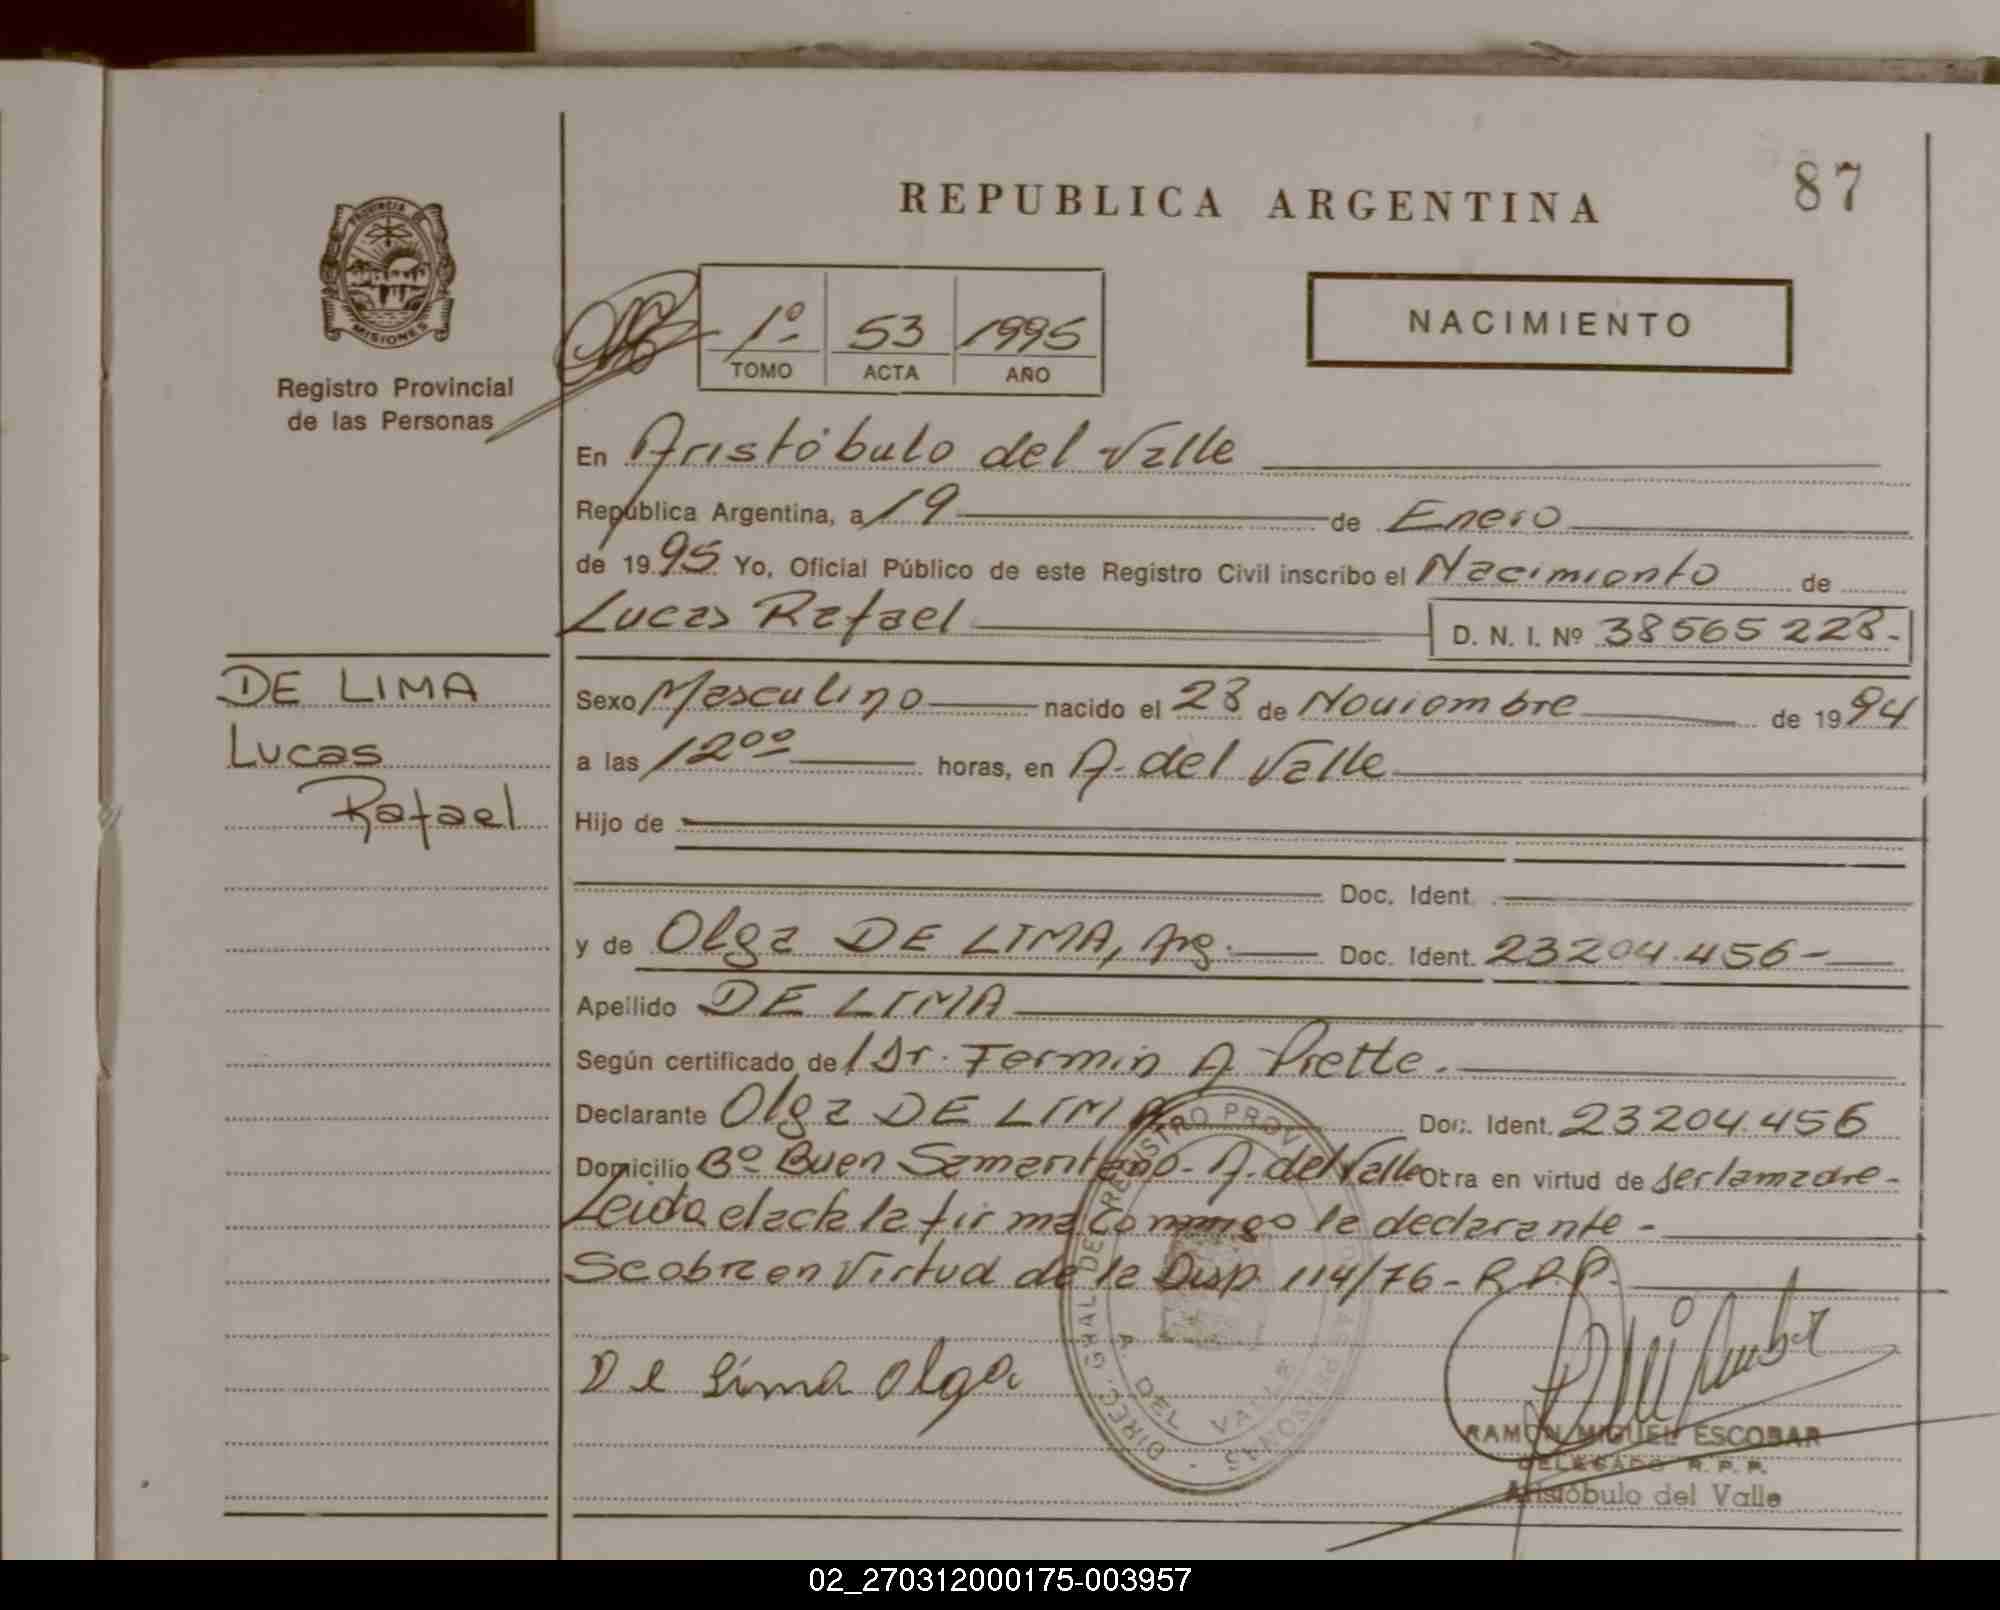 87
REPUBLICA ARGENTINA
PROVINCIA DE
MISIONES
Registro Provincial
de las Personas
1º TOMO 53 ACTA 1995 AÑO
NACIMIENTO
En Aristóbulo del Valle
República Argentina, a 19 de Enero
de 1995 Yo, Oficial Público de este Registro Civil inscribo el Nacimiento de
Lucas Rafael D. N. I. Nº 38565228.-
DE LIMA
Lucas
Rafael
Sexo Masculino nacido el 28 de Noviembre de 1994
a las 12ºº horas, en A. del Valle
Hijo de
Doc. Ident.
y de Olga DE LIMA, Arg. Doc. Ident. 23204.456-
Apellido DE LIMA
Según certificado de l Dr. Fermin A Piette.
Declarante Olga DE LIMA Doc. Ident. 23204.456
Domicilio Bº Buen Samaritano. A. del Valle Obra en virtud de ser la madre-
Leida el acta la firma conmigo la declarante-
Se obra en Virtud de la Disp. 114/76-R.P.P.
De Lima Olga
DIREC. GRAL DEL REGISTRO PROVINCIAL DE LAS PERSONAS
A. DEL VALLE
RAMON MIGUEL ESCOBAR
DELEGADO R. P. P.
Aristóbulo del Valle
02_270312000175-003957